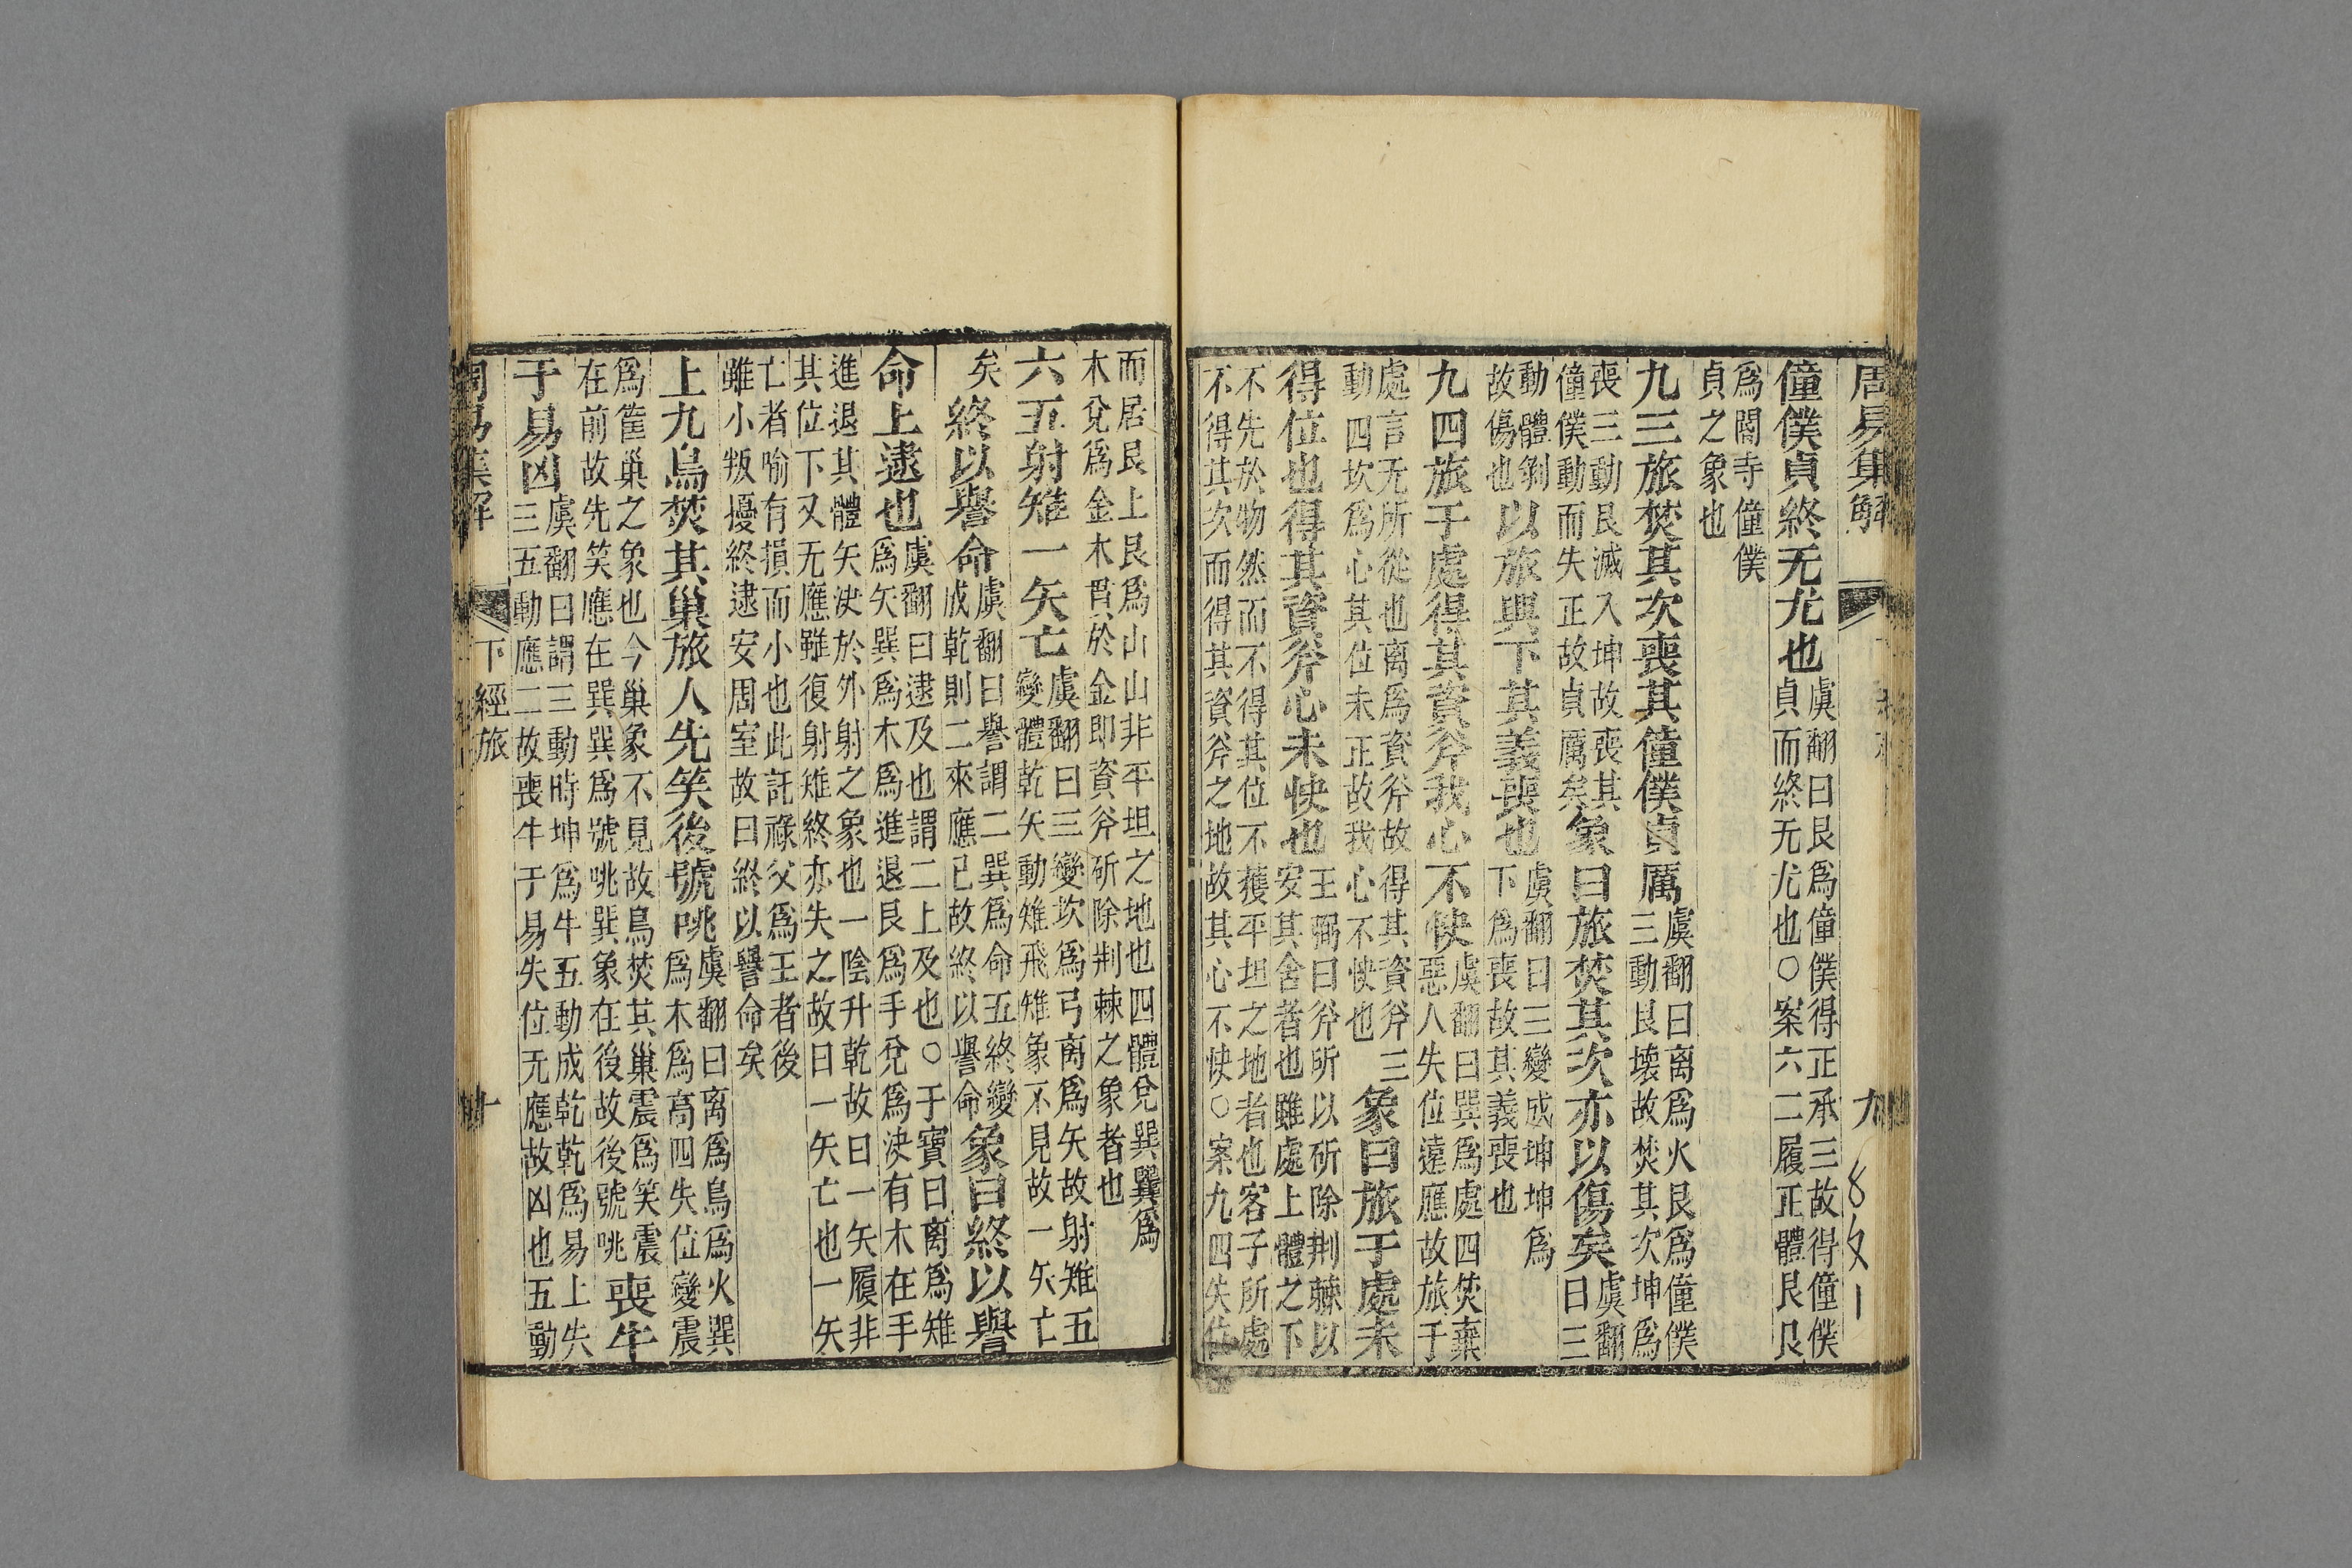 周易集解
九
僮僕貞終无尤也虞翻曰艮爲僮僕得正承三故得僮僕貞而終无尤也○案六二履正體艮艮
爲閽寺僮僕貞之象也
九三旅焚其次喪其僮僕貞厲虞翻曰离爲火艮爲僮僕三動艮壞故焚其次坤爲
喪三動艮滅入坤故喪其僮僕動而失正故貞厲矣象曰旅焚其次亦以傷矣虞翻曰三
動體剝故傷也以旅與下其義喪也虞翻曰三變成坤坤爲下爲喪故其義喪也
九四旅于處得其資斧我心不快虞翻曰巽爲處四焚棄惡人失位遠應故旅于
處言无所從也离爲資斧故得其資斧三動四坎爲心其位未正故我心不快也象曰旅于處未
得位也得其資斧心未快也王弼曰斧所以斫除荆棘以安其舍者也雖處上體之下
不先於物然而不得其位不獲平坦之地者也客子所處不得其次而得其資斧之地故其心不快○案九四失位
而居艮上艮爲山山非平坦之地也四體兌巽巽爲木兌爲金木貫於金即資斧斫除荆棘之象者也
六五射雉一矢亡虞翻曰三變坎爲弓离爲矢故射雉五變體乾矢動雉飛雉象不見故一矢亡
矣終以譽命虞翻曰譽謂二巽爲命五終變成乾則二來應已故終以譽命象曰終以譽
命上逮也虞翻曰逮及也謂二上及也○于寶曰离爲雉爲矢巽爲木爲進退艮爲手兌爲決有木在手
進退其體矢決於外射之象也一陰升乾故曰一矢履非其位下又无應雖復射雉終亦失之故曰一矢亡也一矢
亡者喻有損而小也此託祿父爲王者後雖小叛擾終逮安周室故曰終以譽命矣
上九鳥焚其巢旅人先笑後號咷虞翻曰离爲鳥爲火巽爲木爲高四失位變震
爲筐巢之象也今巢象不見故鳥焚其巢震爲笑震在前故先笑應在巽巽爲號咷巽象在後故後號咷喪牛
于易凶虞翻曰謂三動時坤爲牛五動成乾乾爲易上失三五動應二故喪牛于易失位无應故凶也五動
周易集解
下經旅
十